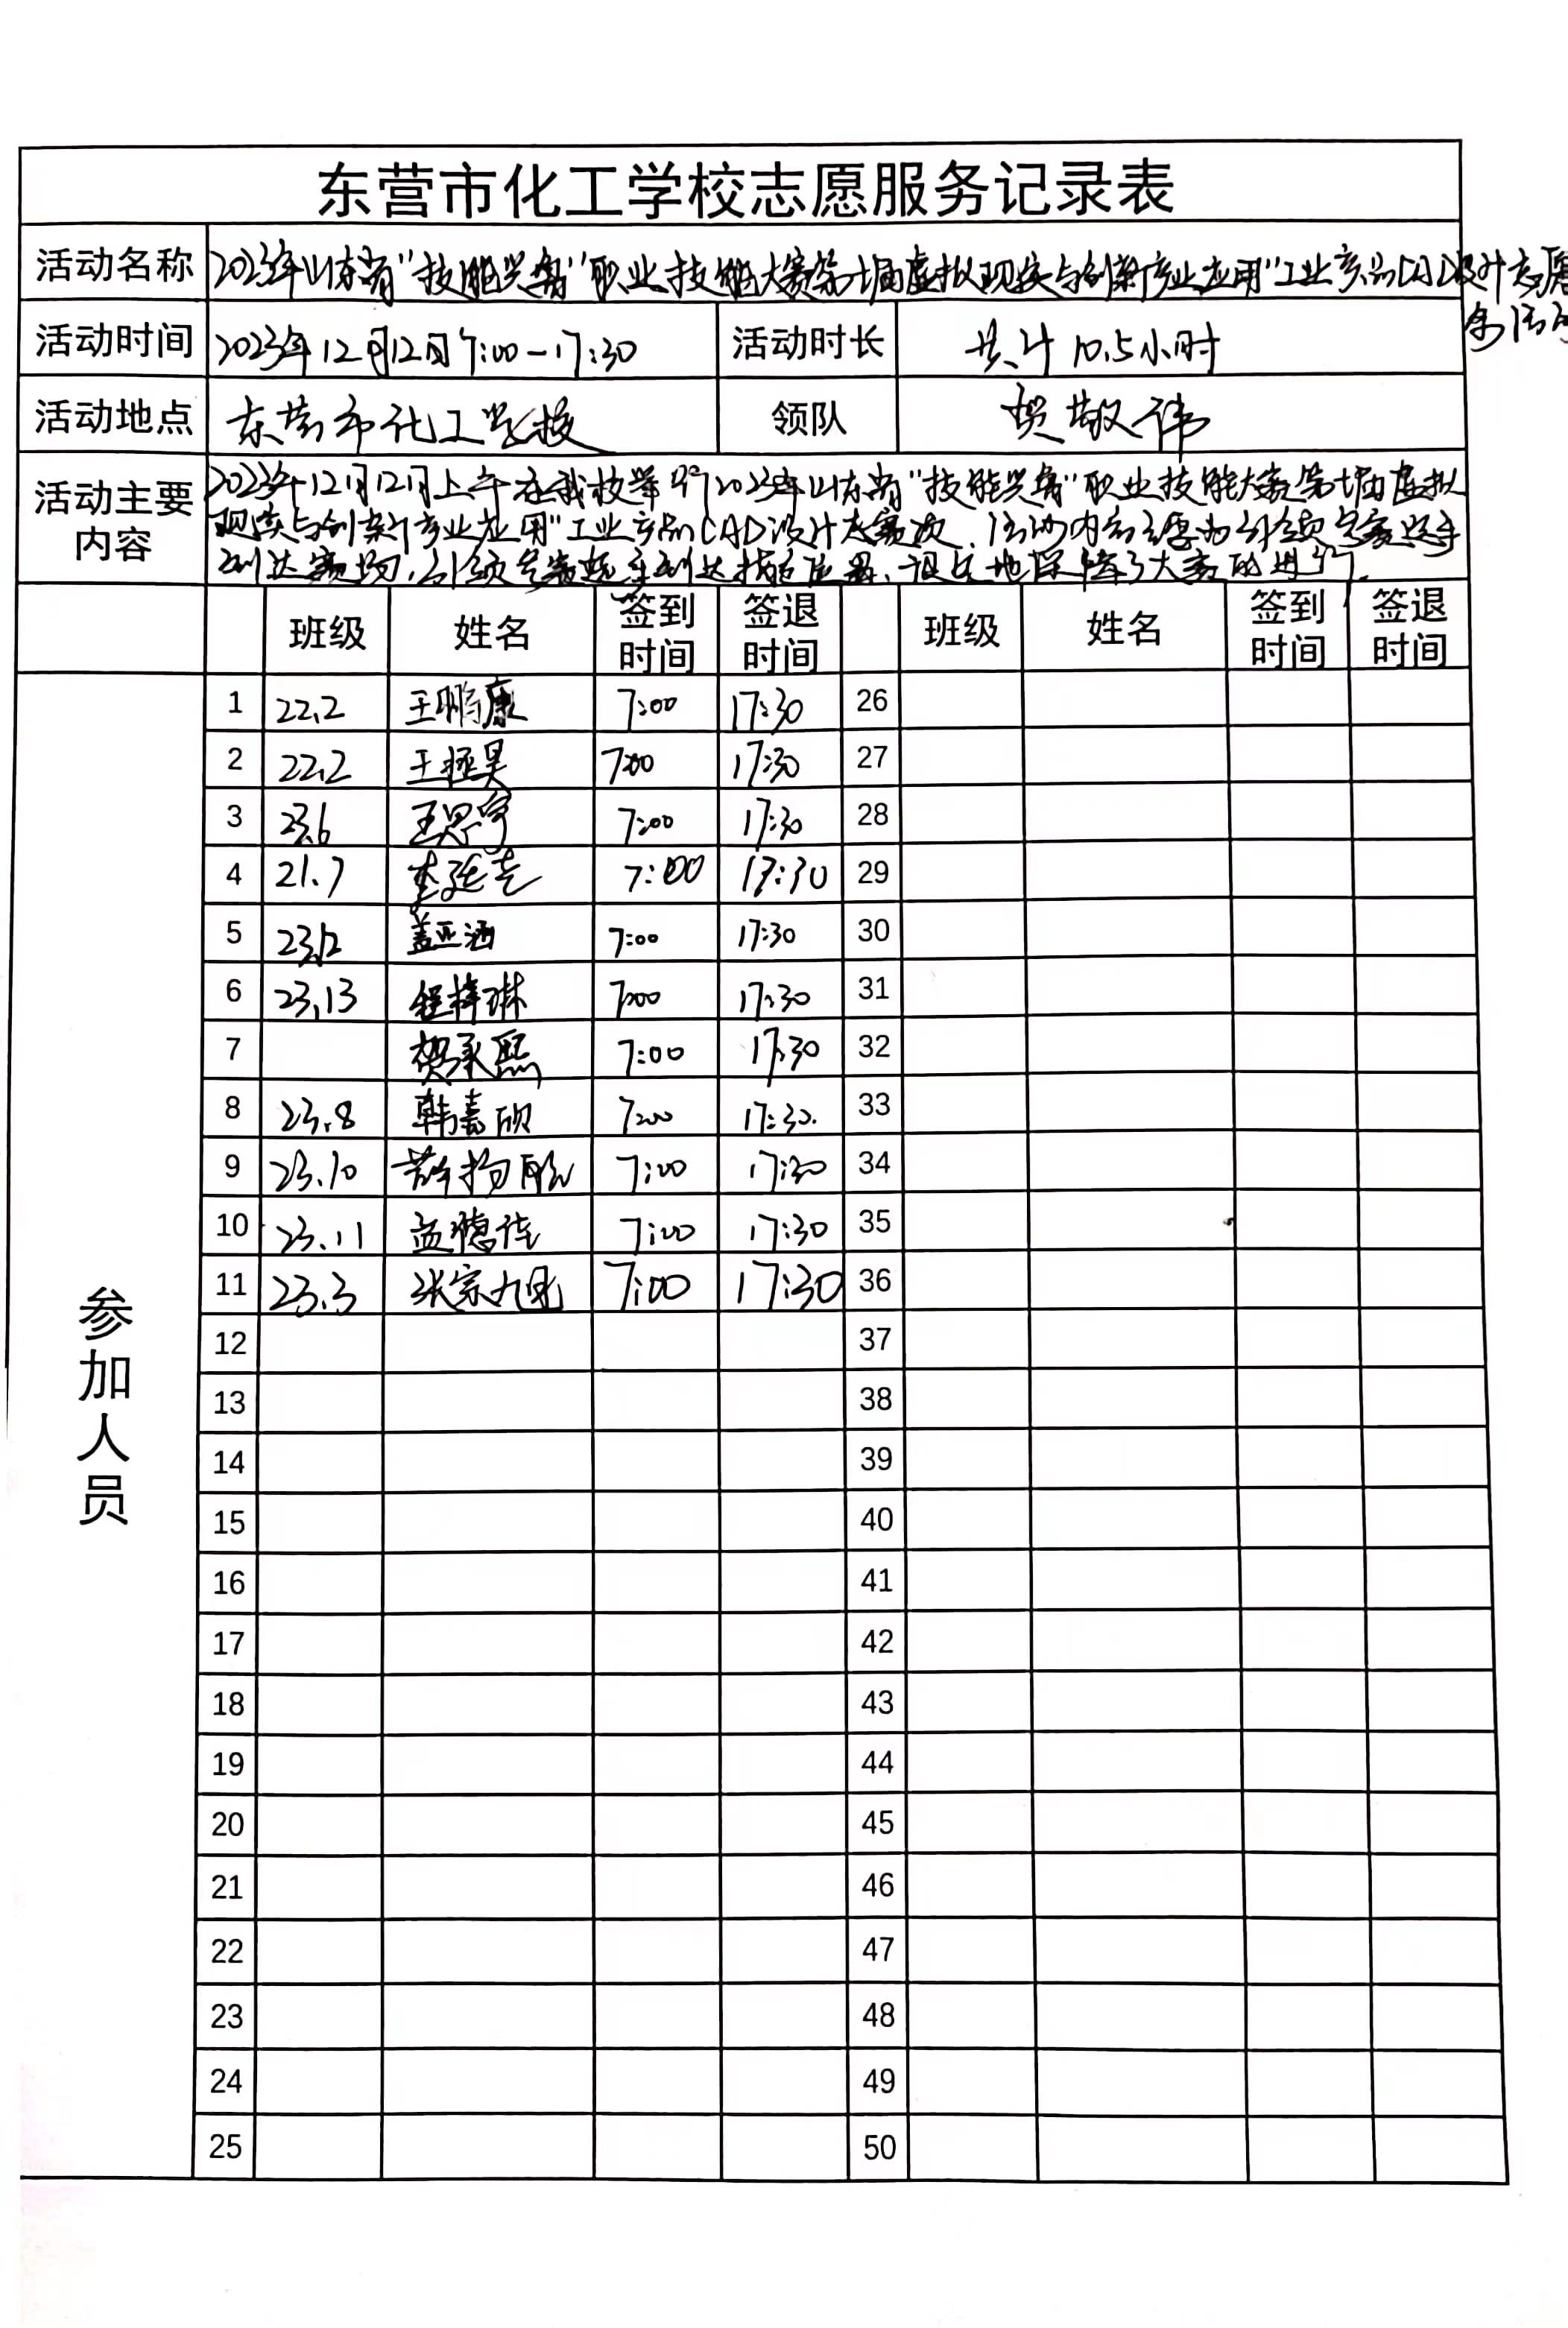 东营市化工学校志愿服务记录表
活动名称 2023年山东省"技能兴鲁"职业技能大赛第 届虚拟现实与创新产业应用"工业产品CAD设计志愿
活动时间 2023年12月12日7:00-17:30 活动时长 共计10.5小时
活动地点 东营市化工学校 领队 贺敬伟
活动主要 2023年12月12日上午在我校举行2023年山东省"技能兴鲁"职业技能大赛第 届虚拟
内容 现实与创新产业应用"工业产品CAD设计大赛 活动内容主要为引领参赛选手
到达赛场,引领参赛选手到达指定位置, 地保障了大赛的进行.
班级 姓名 签到时间 签退时间 班级 姓名 签到时间 签退时间
参加人员
1 22.2 王鹏康 7:00 17:30 26
2 22.2 王拯昊 7:00 17:30 27
3 23.6 王思宇 7:00 17:30 28
4 21.7 李延吉 7:00 17:30 29
5 23.12 盖亚涵 7:00 17:30 30
6 23.13 程梓琳 7:00 17:30 31
7 贺承熙 7:00 17:30 32
8 23.8 韩嘉硕 7:00 17:30. 33
9 23.10 7:00 17:30 34
10 23.11 孟德佳 7:00 17:30 35
11 23.3 张宗旭 7:00 17:30 36
12 37
13 38
14 39
15 40
16 41
17 42
18 43
19 44
20 45
21 46
22 47
23 48
24 49
25 50